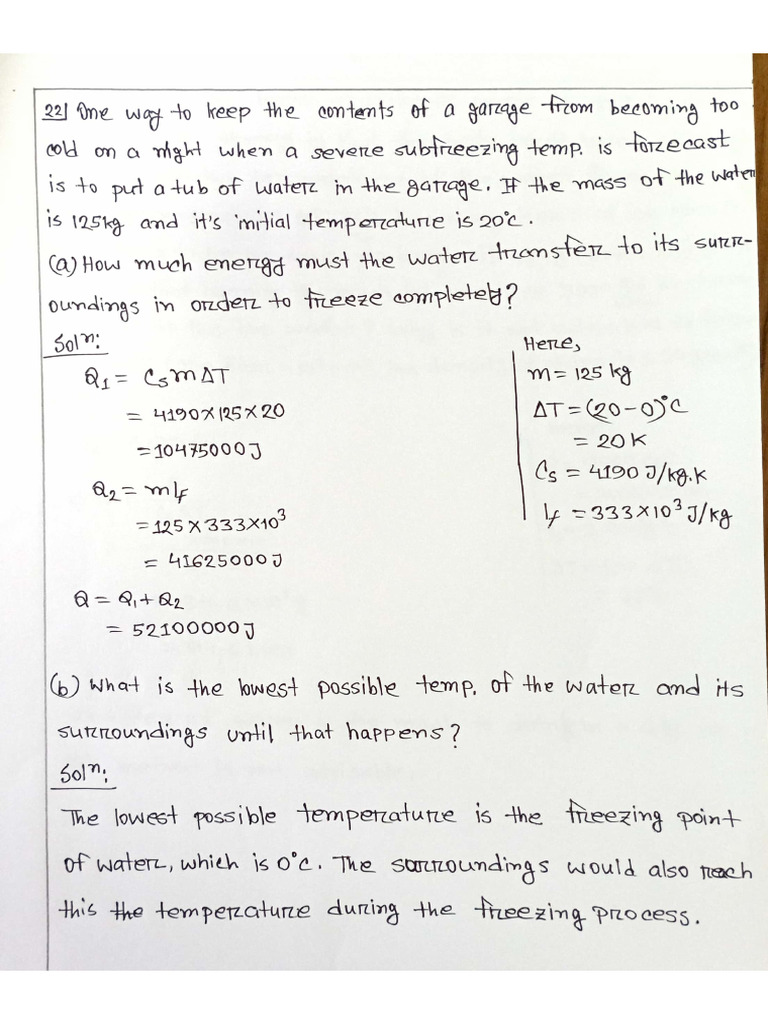 22| One way to keep the contents of a garage from becoming too
cold on a night when a severe subfreezing temp. is forecast
is to put a tub of water in the garage. If the mass of the water
is 125kg and it's initial temperature is 20°c.
(a) How much energy must the water transfer to its surr-
oundings in order to freeze completely?
Solⁿ:
Q₁ = CₛmΔT
= 4190×125×20
= 10475000J
Q₂ = mlf
= 125×333×10³
= 41625000J
Q = Q₁+Q₂
= 52100000J
Here,
m = 125 kg
ΔT = (20-0)°C
= 20K
Cₛ = 4190 J/kg.K
lf = 333×10³ J/kg
(b) What is the lowest possible temp. of the water and its
surroundings until that happens?
Solⁿ:
The lowest possible temperature is the freezing point
of water, which is 0°c. The surroundings would also reach
this the temperature during the freezing process.